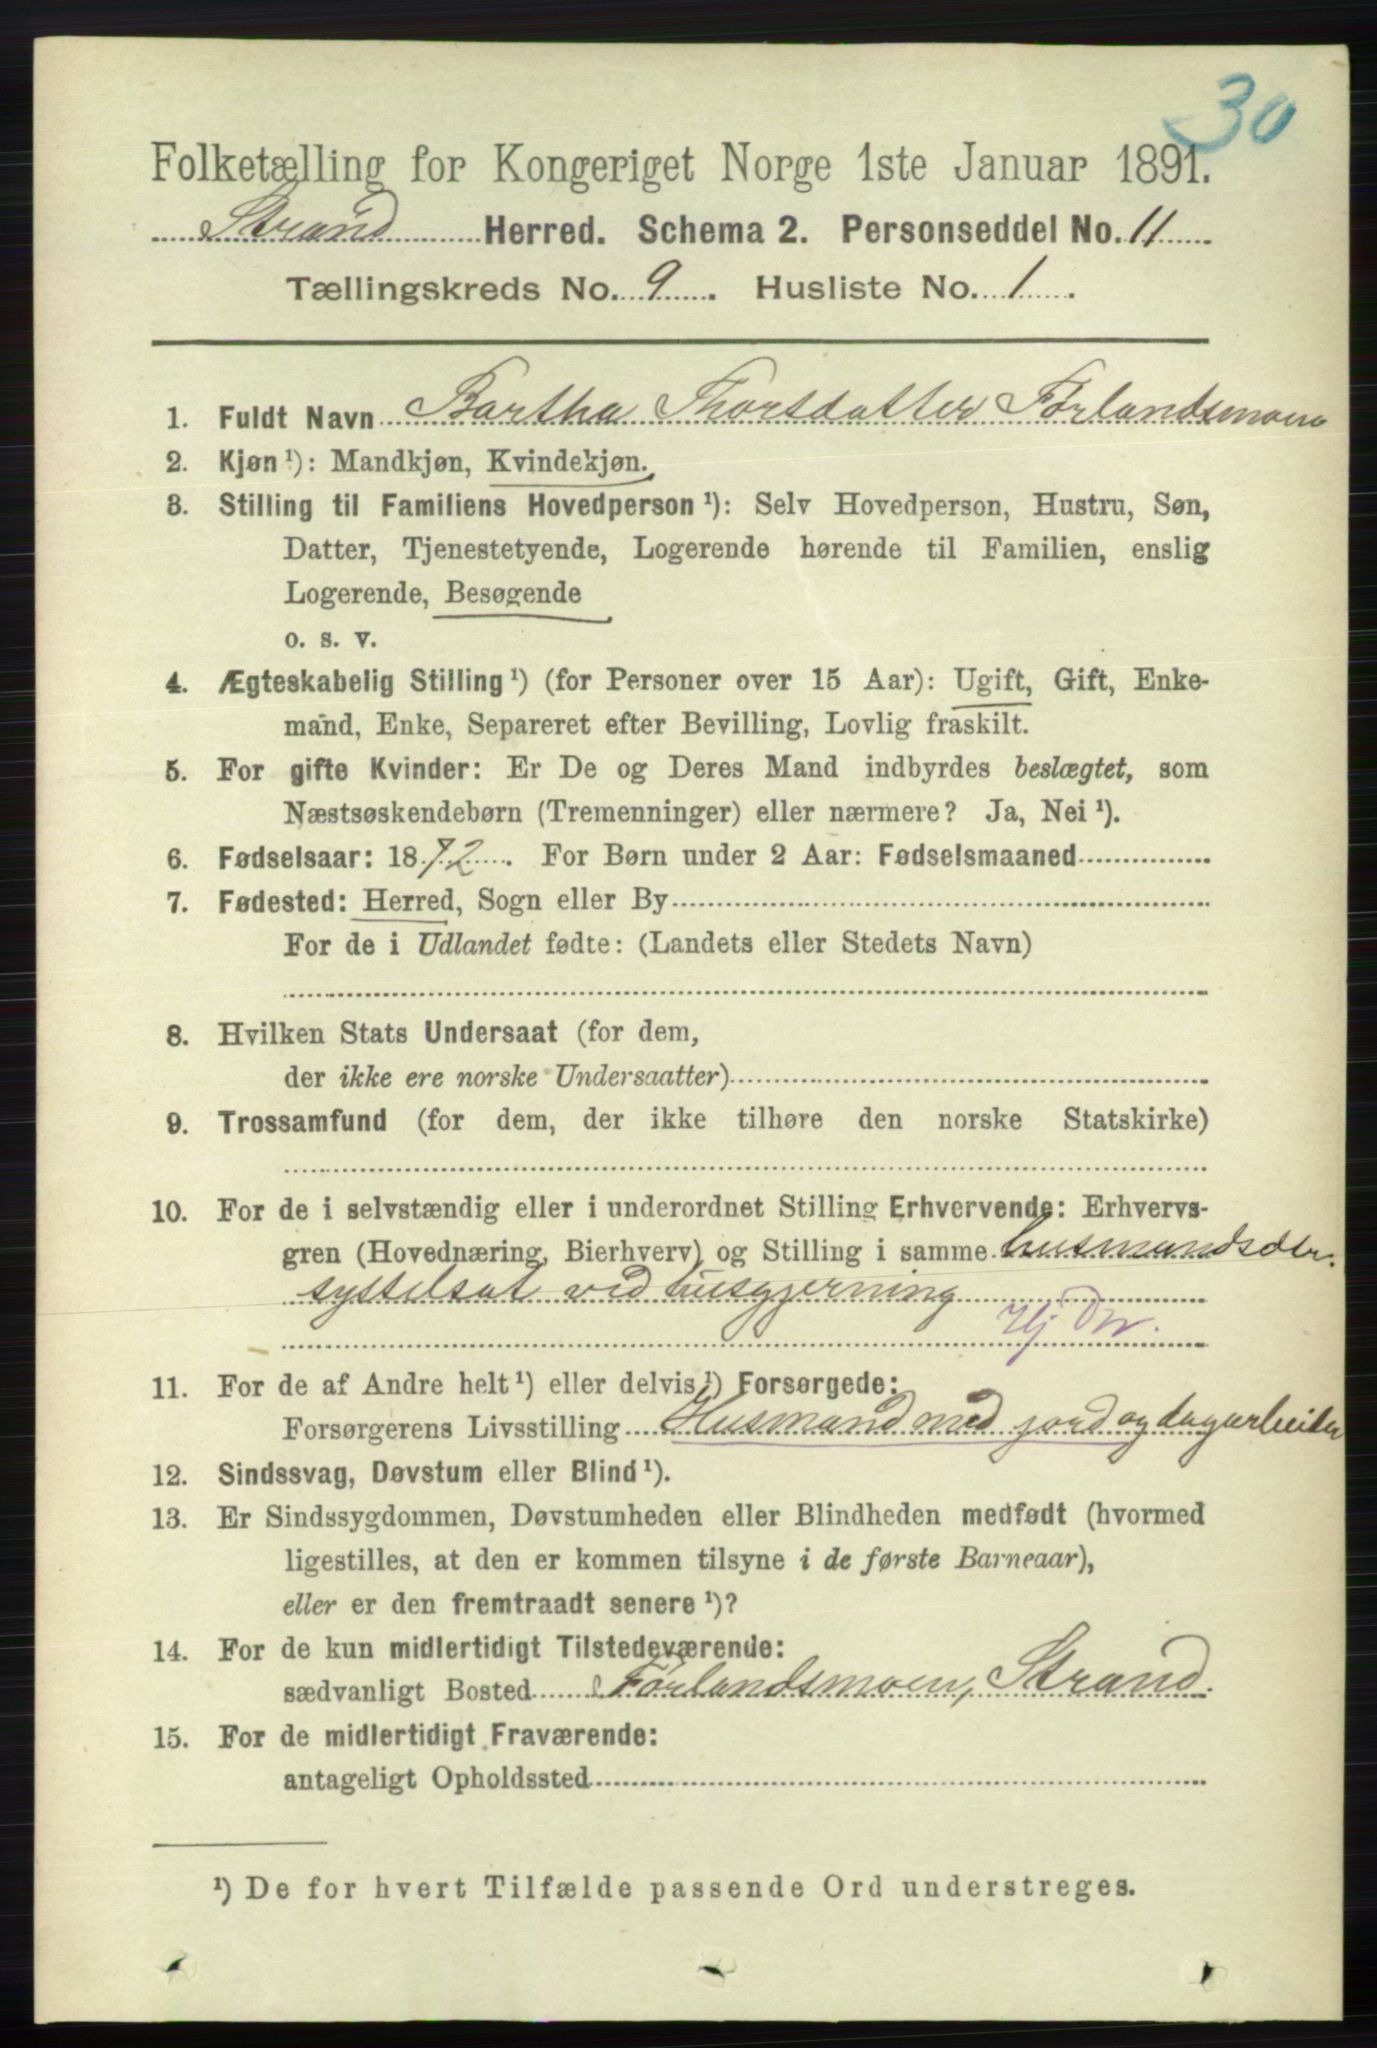 30
Folketælling for Kongeriget Norge 1ste Januar 1891.
Strand Herred. Schema 2. Personseddel No. 11
Tællingskreds No. 9. Husliste No. 1.
1. Fuldt Navn Bartha Thorsdatter Førlandsmoen
2. Kjøn ¹): Mandkjøn, Kvindekjøn.
3. Stilling til Familiens Hovedperson ¹): Selv Hovedperson, Hustru, Søn,
Datter, Tjenestetyende, Logerende hørende til Familien, enslig
Logerende, Besøgende
o. s. v.
4. Ægteskabelig Stilling ¹) (for Personer over 15 Aar): Ugift, Gift, Enke-
mand, Enke, Separeret efter Bevilling, Lovlig fraskilt.
5. For gifte Kvinder: Er De og Deres Mand indbyrdes beslægtet, som
Næstsøskendebørn (Tremenninger) eller nærmere? Ja, Nei ¹).
6. Fødselsaar: 1872. For Børn under 2 Aar: Fødselsmaaned
7. Fødested: Herred, Sogn eller By
For de i Udlandet fødte: (Landets eller Stedets Navn)
8. Hvilken Stats Undersaat (for dem,
der ikke ere norske Undersaatter)
9. Trossamfund (for dem, der ikke tilhøre den norske Statskirke)
10. For de i selvstændig eller i underordnet Stilling Erhvervende: Erhvervs-
gren (Hovednæring, Bierhverv) og Stilling i samme husmandsdtr.
sysselsat ved husgjerning
Hj Dtr.
11. For de af Andre helt ¹) eller delvis ¹) Forsørgede:
Forsørgerens Livsstilling Husmand med jord og dagarbeider
12. Sindssvag, Døvstum eller Blind ¹).
13. Er Sindssygdommen, Døvstumheden eller Blindheden medfødt (hvormed
ligestilles, at den er kommen tilsyne i de første Barneaar),
eller er den fremtraadt senere ¹)?
14. For de kun midlertidigt Tilstedeværende:
sædvanligt Bosted Førlandsmoen, Strand.
15. For de midlertidigt Fraværende:
antageligt Opholdssted
¹) De for hvert Tilfælde passende Ord understreges.